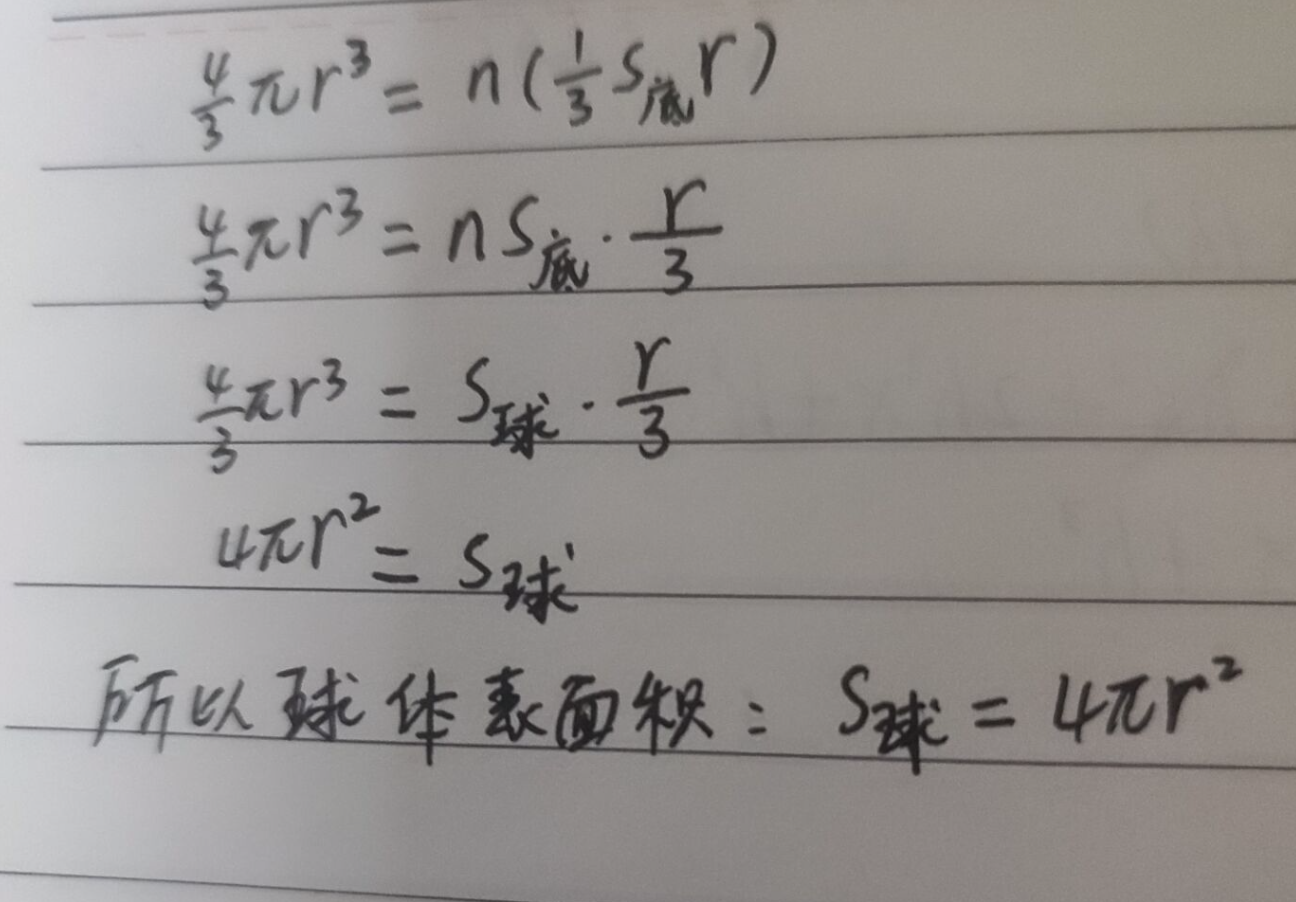 4/3 πr³ = n(1/3 S底 r)
4/3 πr³ = nS底 · r/3
4/3 πr³ = S球 · r/3
4πr² = S球
所以球体表面积：S球 = 4πr²